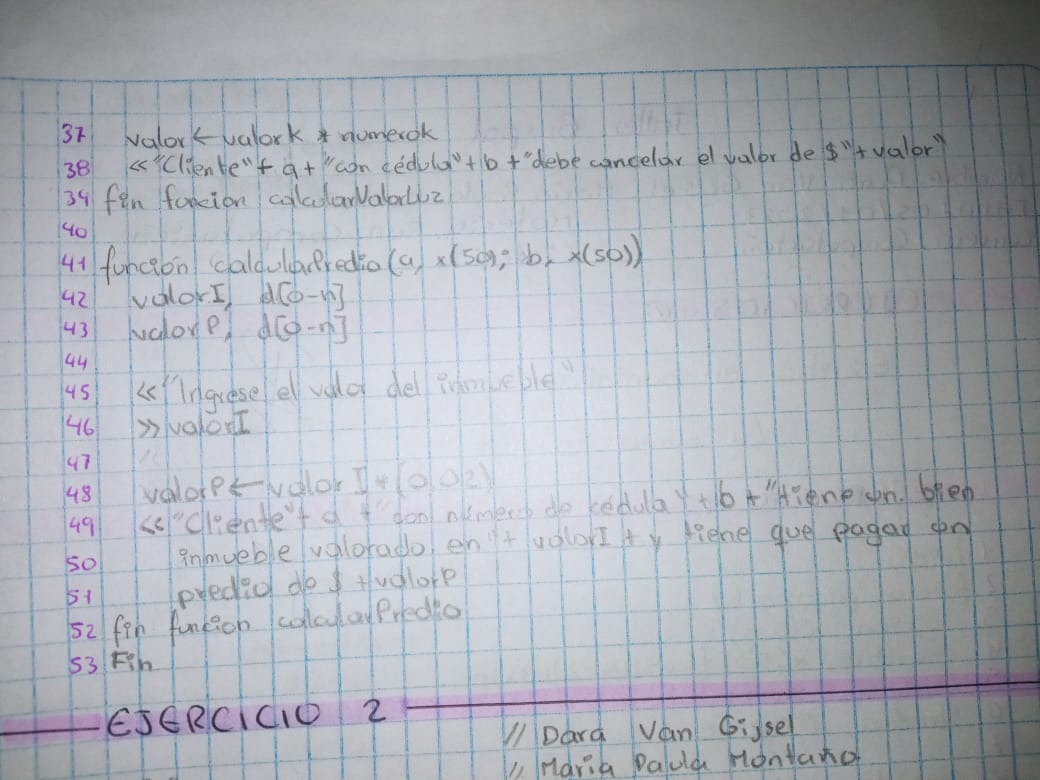 37 valor ← valork * numerok
38 <<"Cliente" + a + "con cédula" + b + "debe cancelar el valor de $" + valor"
39 fin funcion calcularValorLuz
40
41 función calcularPredio (a, x(50); b, x(50))
42 valorI, d[0-n]
43 valorP, d[0-n]
44
45 <<"Ingrese el valor del inmueble"
46 >> valorI
47
48 valorP ← valorI * (0,02)
49 <<"Cliente" + a + "con número de cédula" + b + "tiene un bien
50 inmueble valorado en" + valorI + y tiene que pagar un
51 predio de $ + valorP
52 fin función calcularPredio
53 Fin
EJERCICIO 2
// Dara Van Gijsel
// Maria Paula Montaño